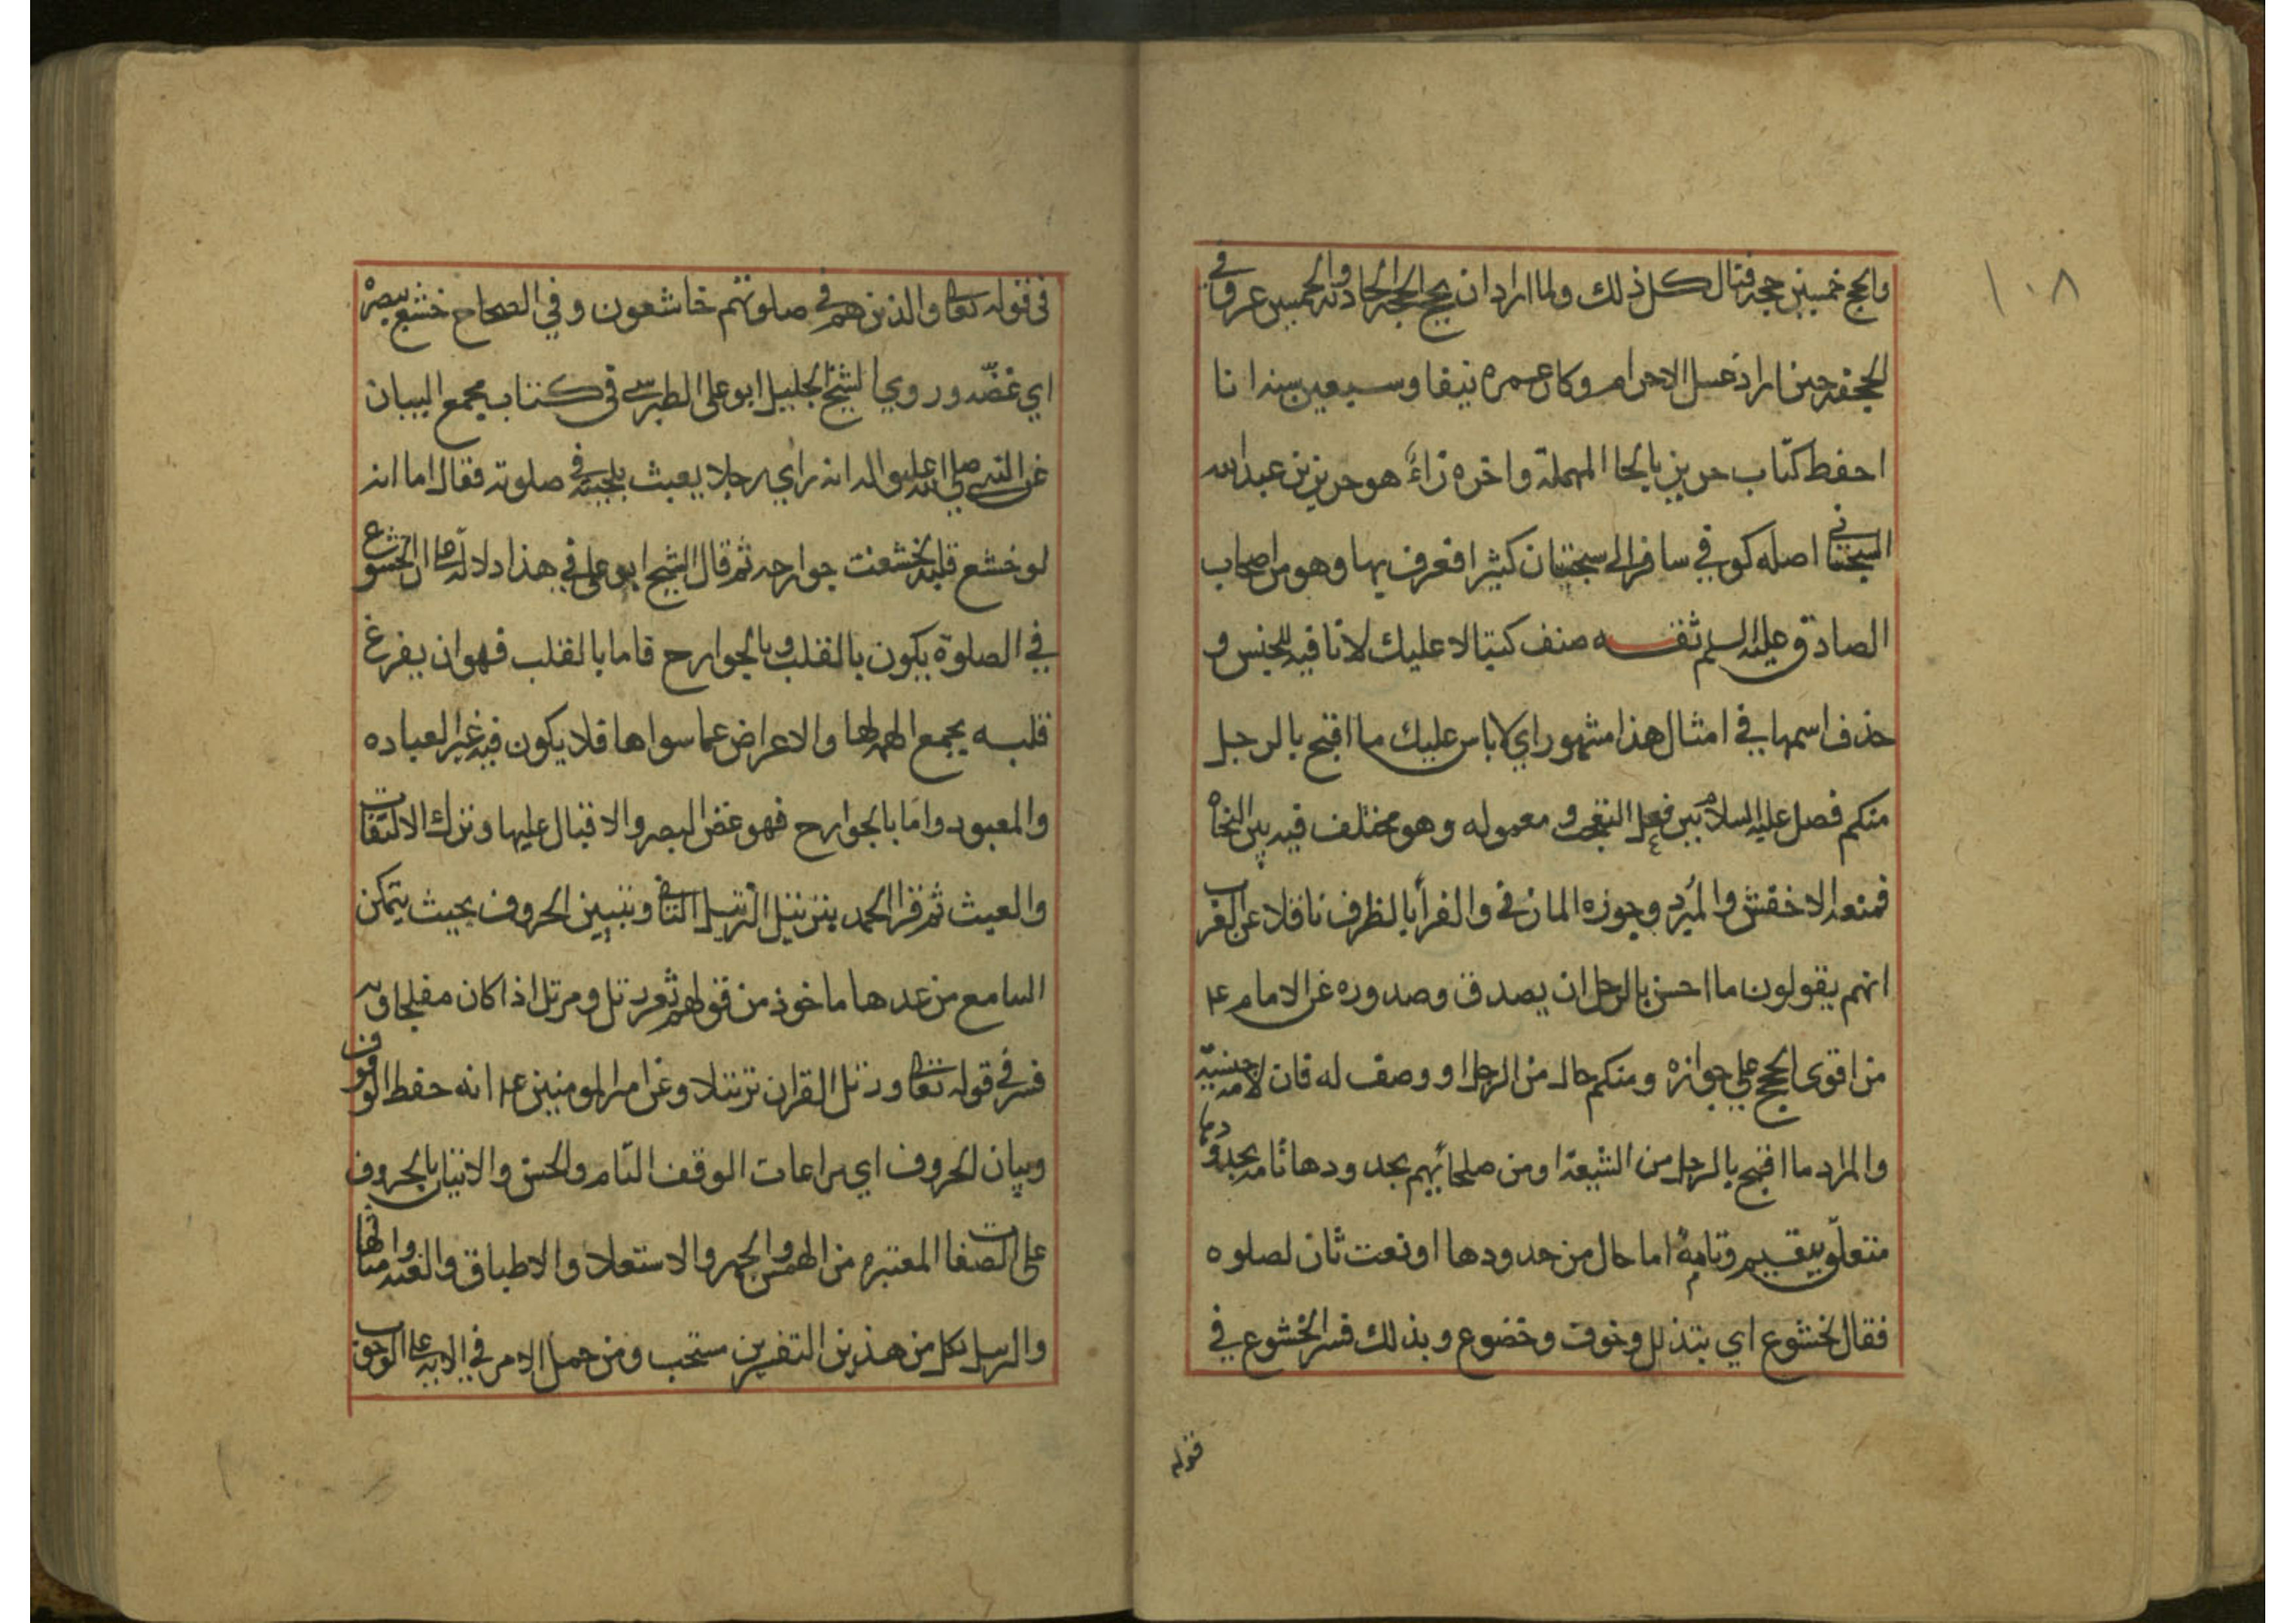 ١٠٨
والحج خمسين حجة فنال كل ذلك ولما اراد ان يحج الحجة الحادية والخمسين غرق في
الجحفه حين اراد غسل الاحرام وكان عمره نيفا وسبعين سنه انا
احفظ كتاب حريز بالحا المهملة واخره زاءً هو حريز بن عبد الله
السجستاني اصله كوفي سافر الى سجستان كثيرا فعرف بها وهو من اصحاب
الصادق عليه السلم ثقـــه صنف كتبا لا عليك لا نافيه للجنس و
حذف اسمها في امثال هذا مشهور اي لا باس عليك ما اقبح بالرجل
منكم فصل عليه السلام بين فعل التعجب و معموله وهو مختلف فيه بين النحاه
فمنعه الاخفش والمبرد وجوزه المازني والفرأ بالظرف ناقلا عن العرب
انهم يقولون ما احسن بالرجل ان يصدق وصدوره عن الامام ع
من اقوى الحجج على جوازه ومنكم حال من الرجل او وصف له فان لامه جنسيّه
والمراد ما اقبح بالرجل من الشيعة او من صلحائهم بحدودها تامه بحدودها
متعلق بيقيم وتامةً اما حال من حدودها او نعت ثان لصلوه
فقال لخشوع اي بتذلل وخوف وخضوع وبذلك فسر الخشوع في
قوله
في قوله تعالى والذين هم في صلوتهم خاشعون وفي الصحاح خشع ببصره
اي غضّه وروي الشيخ الجليل ابو على الطبرسي في كتاب مجمع البيان
عن النبي صلى الله عليه واله انه رأي رجلا يعبث بلحيته في صلوته فقال اما انه
لو خشع قلبه لخشعت جوارحه ثم قال الشيخ ابو على في هذا دلالة على ان الخشوع
في الصلوة يكون بالقلب و بالجوارح فاما بالقلب فهو ان يفرغ
قلبه بجمع الهمه لها والاعراض عما سواها فلا يكون فيه غير العباده
والمعبود وامَا بالجوارح فهو غض البصر والاقبال عليها وترك الالتفات
والعبث ثم قرا الحمد بترتيل الترتيل التانى وتبيين الحروف بحيث يتمكن
السامع من عدها ماخوذ من قولهم ثغر رتل ومرتل اذا كان مفلجا وبه
فسر في قوله تعالى ورتل القران ترتيلا وعن امير المومنين ع انه حفظ الوقوف
وبيان الحروف اي مراعات الوقف التّام والحسن والاتيان بالحروف
على الصفات المعتبره من الهمس والجهر والاستعلا والاطباق والغنه وامثالها
والترتيل بكل من هذين التفسيرين مستحب ومن حمل الامر في الايه على الوجوب